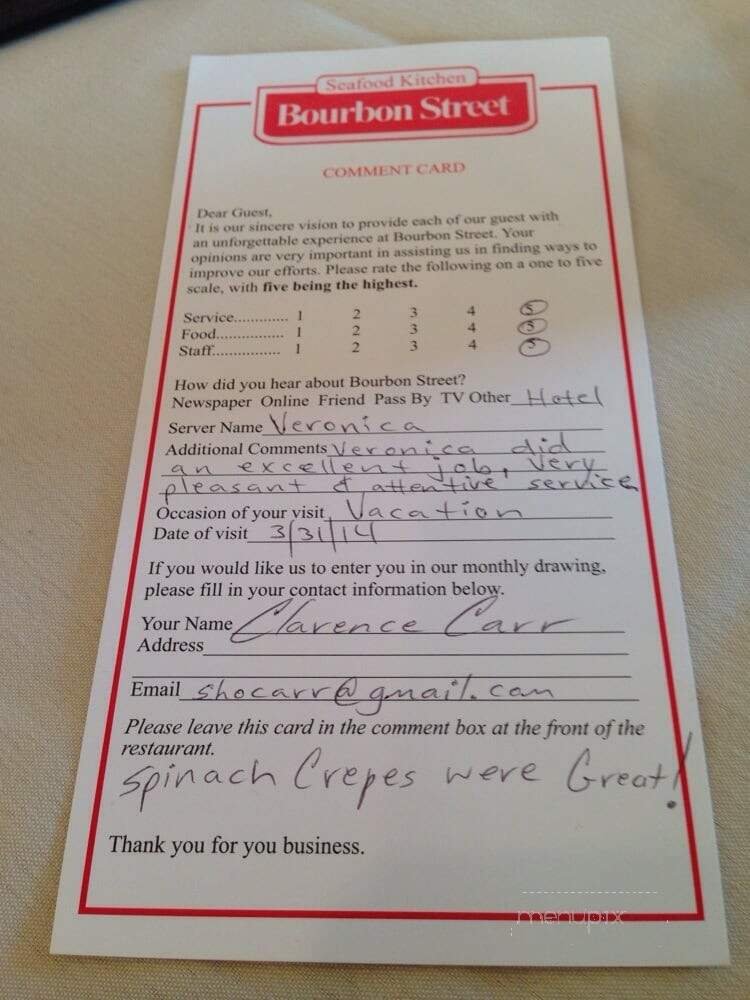 Seafood Kitchen
Bourbon Street
COMMENT CARD
Dear Guest,
It is our sincere vision to provide each of our guest with
an unforgettable experience at Bourbon Street. Your
opinions are very important in assisting us in finding ways to
improve our efforts. Please rate the following on a one to five
scale, with five being the highest.
Service............. 1 2 3 4 5
Food................ 1 2 3 4 5
Staff................ 1 2 3 4 5
How did you hear about Bourbon Street?
Newspaper Online Friend Pass By TV Other Hotel
Server Name Veronica
Additional Comments Veronica did
an excellent job, Very
pleasant & attentive service
Occasion of your visit Vacation
Date of visit 3/31/14
If you would like us to enter you in our monthly drawing,
please fill in your contact information below.
Your Name Clarence Carr
Address
Email shocarr@gmail.com
Please leave this card in the comment box at the front of the
restaurant.
Spinach Crepes were Great!
Thank you for you business.
menupix